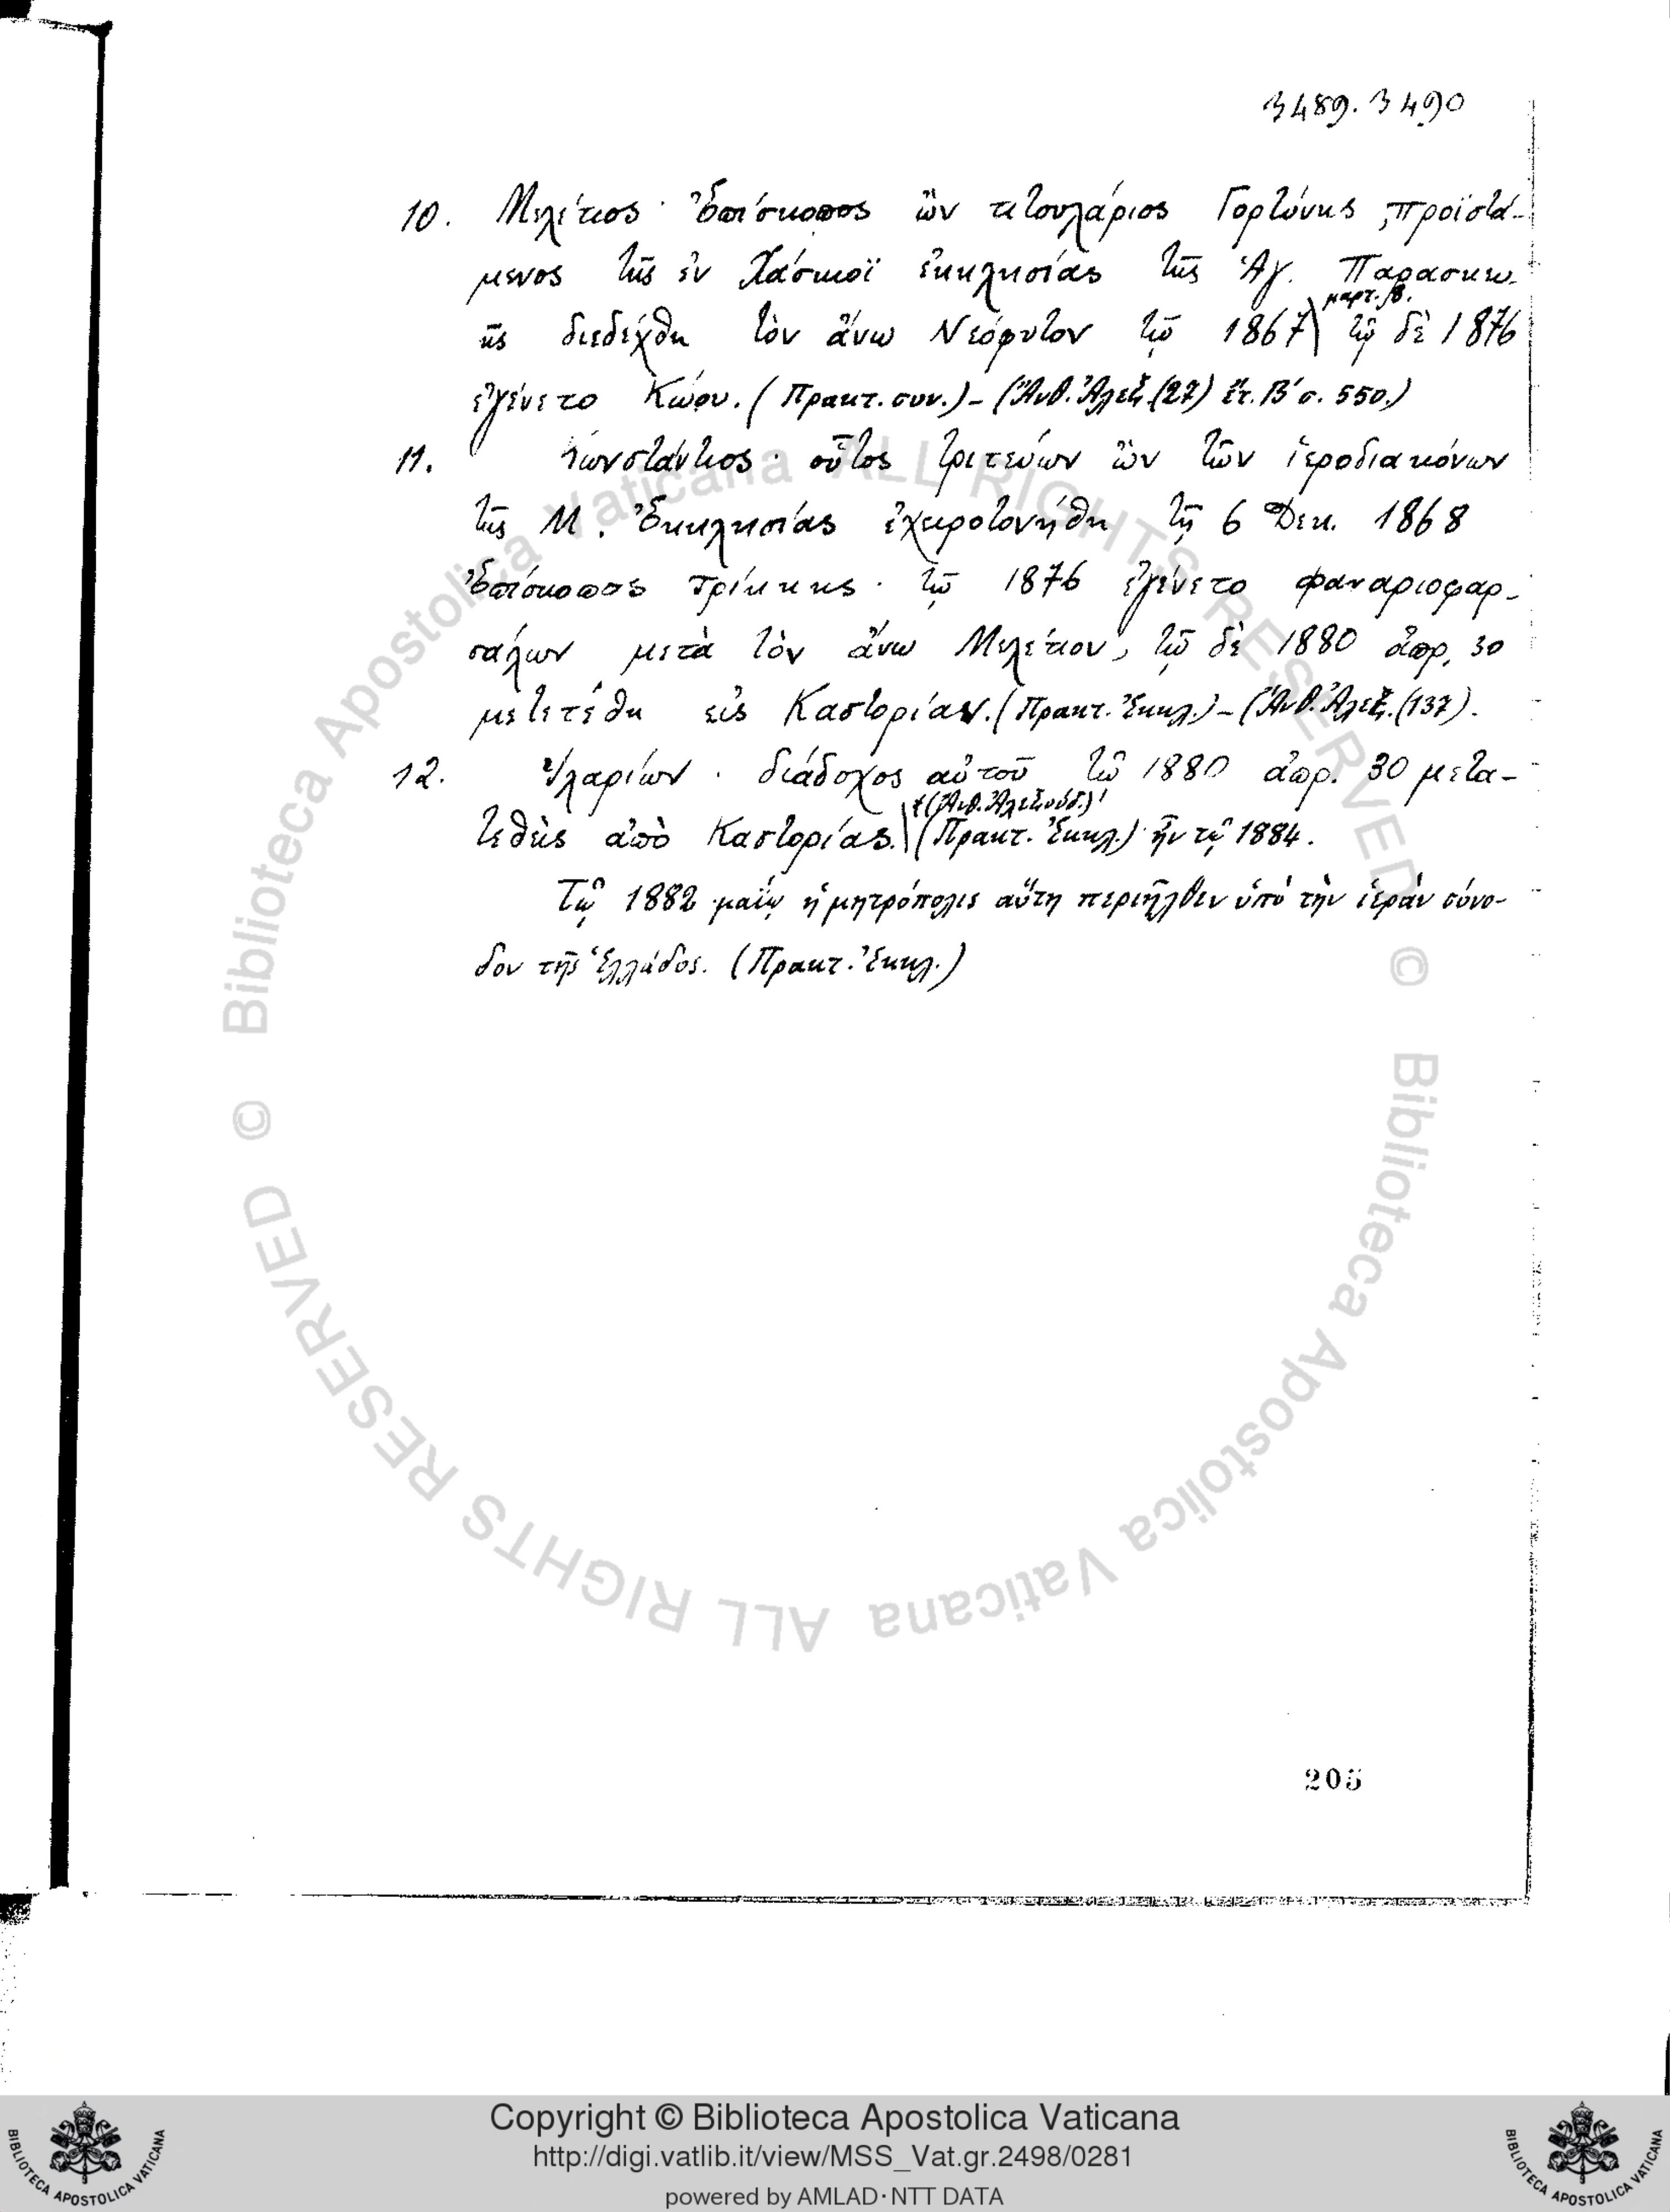 3489. 3490
10. Μελέτιος · Ἐπίσκοπος ὢν τιτουλάριος Γορτύνης, προϊστά-
μενος τῆς ἐν Χάσκιοϊ ἐκκλησίας τῆς Ἁγ. Παρασκευ-
ῆς διεδέχθη τὸν ἄνω Νεόφυτον τῷ 1867 τῷ δὲ 1876
μαρτ. 18.
ἐγένετο Κώου. (Πρακτ. συν.) – (Ἀνθ. Ἀλεξ. (27) ἔτ. Β΄ σ. 550.)
11. Κωνστάντιος · οὗτος τριτεύων ὢν τῶν ἱεροδιακόνων
τῆς Μ. Ἐκκλησίας ἐχειροτονήθη τῇ 6 Δεκ. 1868
Ἐπίσκοπος Τρίκκης · τῷ 1876 ἐγένετο φαναριοφαρ-
σάλων μετὰ τὸν ἄνω Μελέτιον, τῷ δὲ 1880 ἀπρ. 30
μετετέθη εἰς Καστορίαν. (Πρακτ. Ἐκκλ.) – (Ἀνθ. Ἀλεξ. (137).
12. Ἱλαρίων · διάδοχος αὐτοῦ τῷ 1880 ἀπρ. 30 μετα-
† (Ἀνθ. Ἀλεξουδ.)
τεθεὶς ἀπὸ Καστορίας. (Πρακτ. Ἐκκλ.) ἦν τῷ 1884.
Τῷ 1882 μαΐῳ ἡ μητρόπολις αὕτη περιῆλθεν ὑπὸ τὴν ἱερὰν σύνο-
δον τῆς Ἑλλάδος. (Πρακτ. Ἐκκλ.)
205
© Biblioteca Apostolica Vaticana ALL RIGHTS RESERVED © Biblioteca Apostolica Vaticana ALL RIGHTS RESERVED
Copyright © Biblioteca Apostolica Vaticana
http://digi.vatlib.it/view/MSS_Vat.gr.2498/0281
powered by AMLAD·NTT DATA
BIBLIOTECA APOSTOLICA VATICANA
BIBLIOTECA APOSTOLICA VATICANA